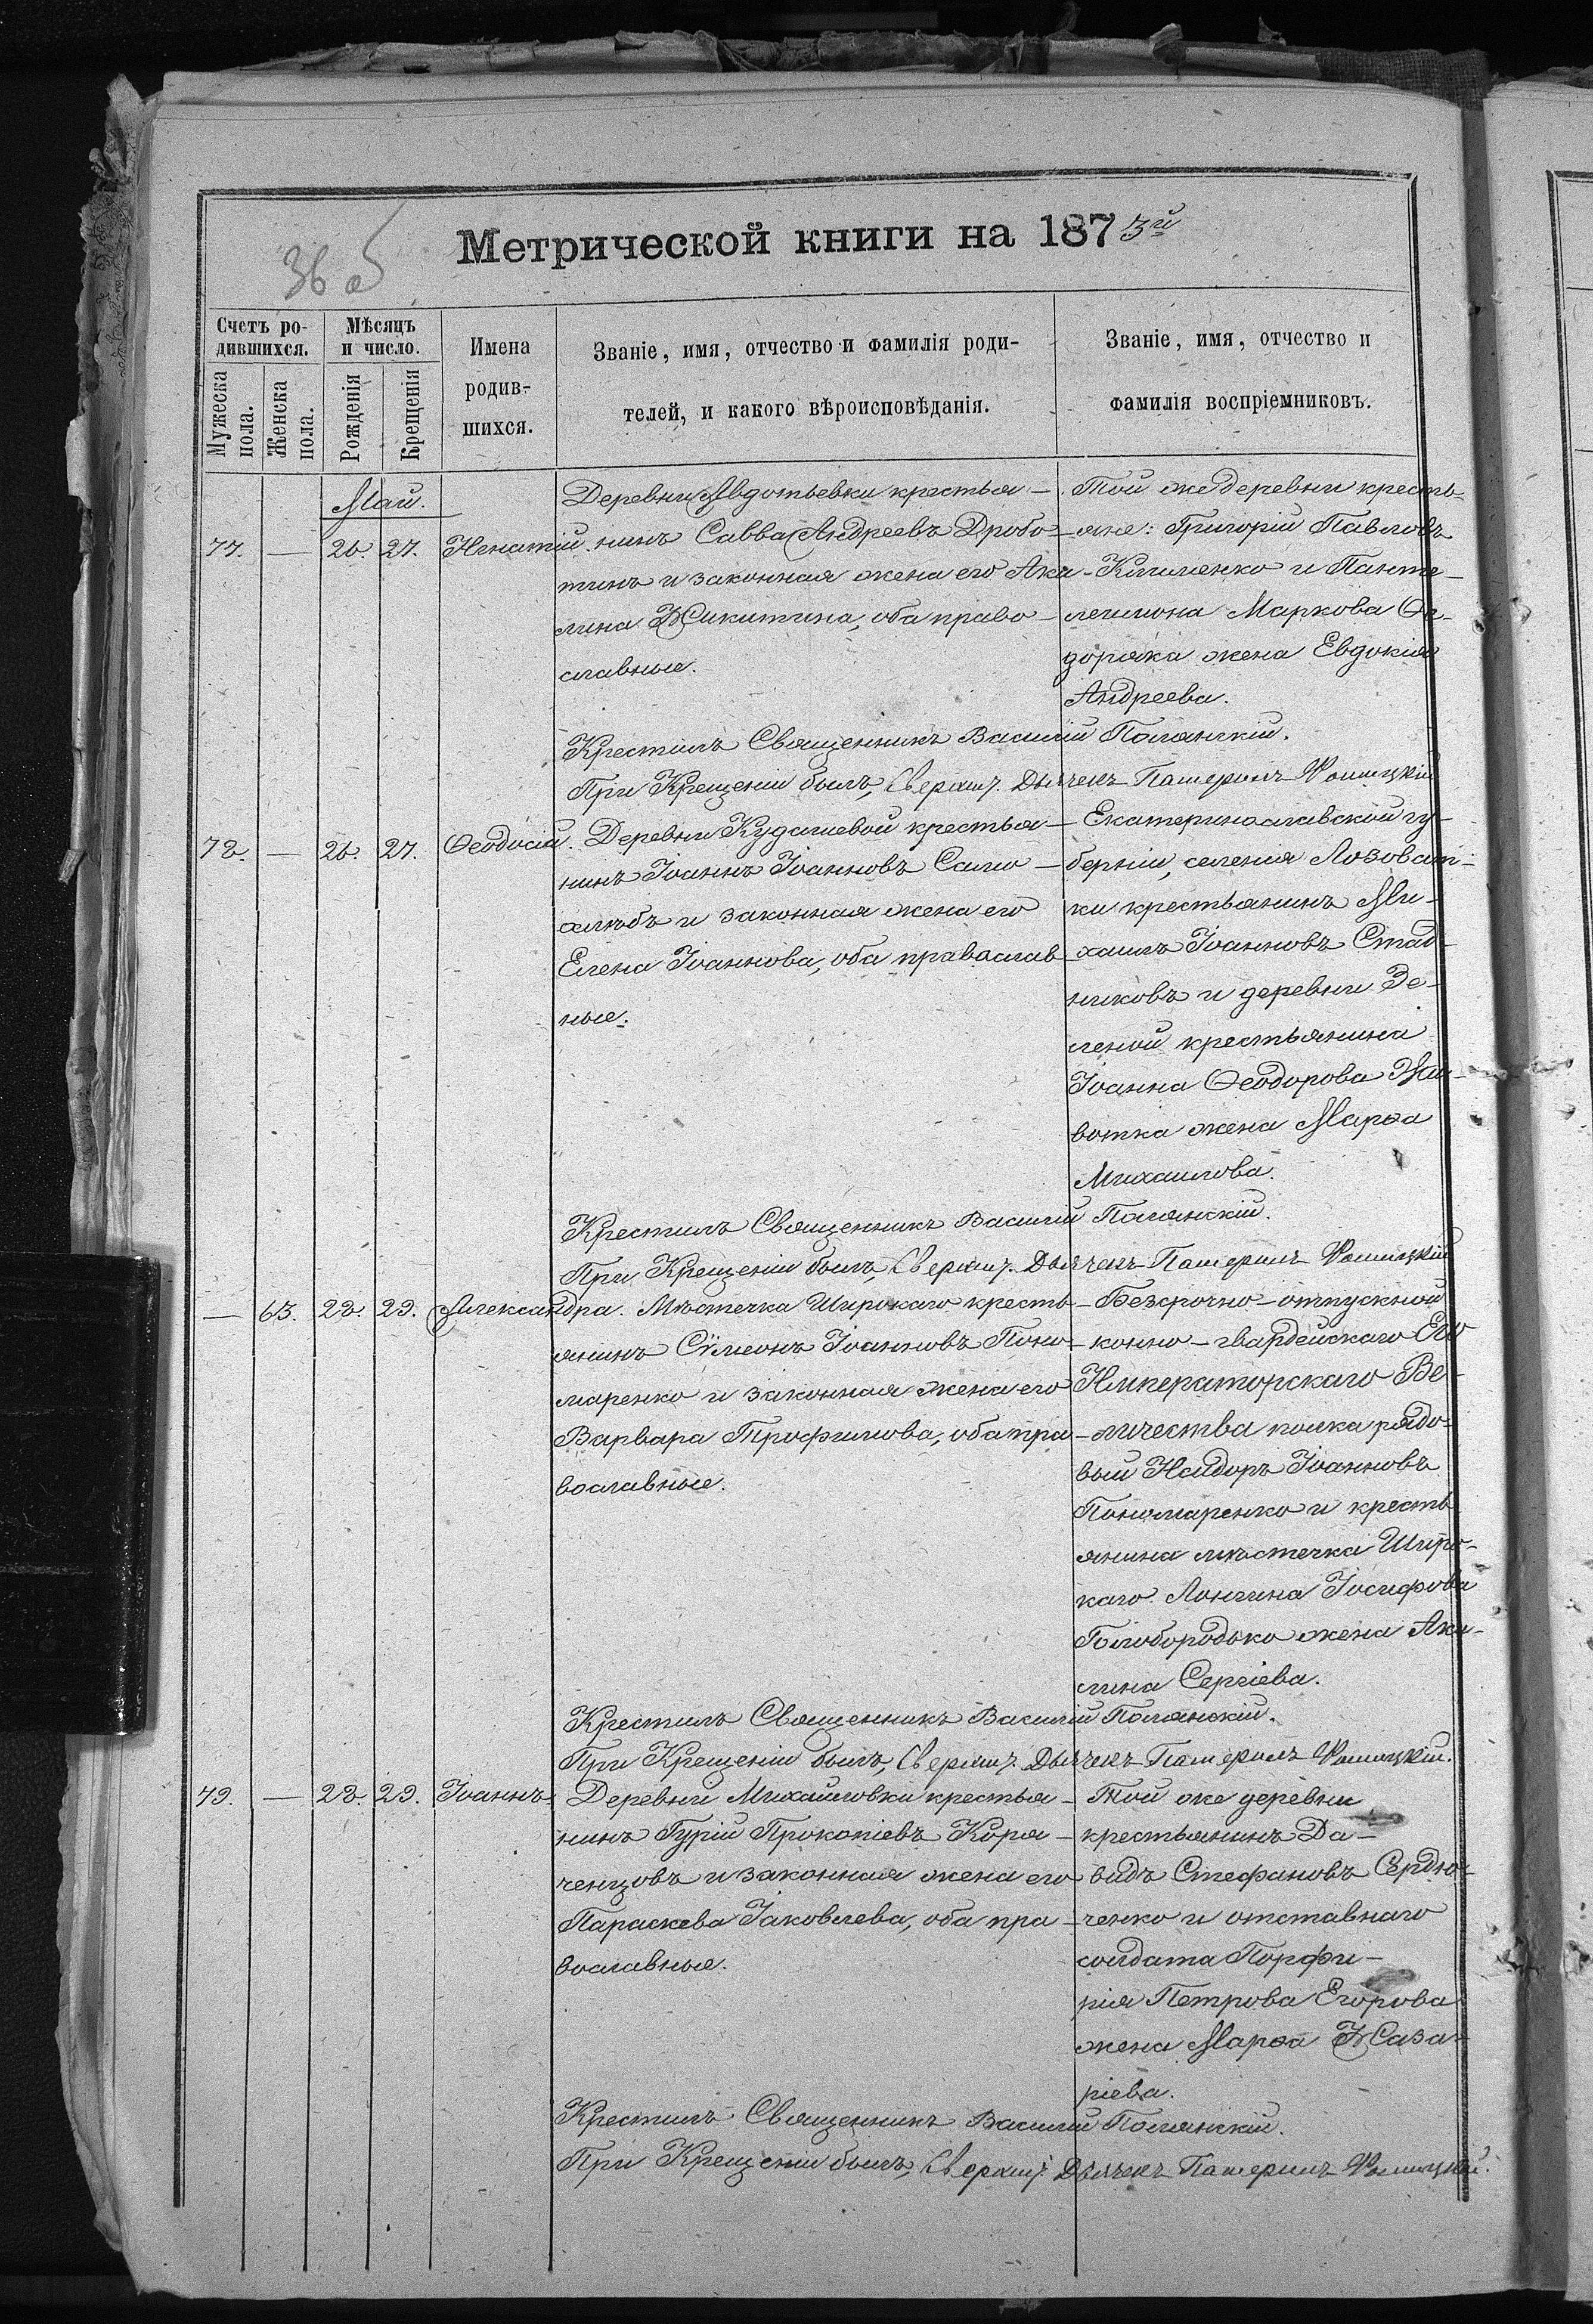 36 об
Метрической книги на 1873й
Счетъ ро-
дившихся.
Мѣсяцъ
и число.
Имена
родив-
шихся.
Званіе, имя, отчество и фамилія роди-
телей, и какого вѣроисповѣданія.
Званіе, имя, отчество и
фамилія воспріемниковъ.
Мужеска
пола.
Женска
пола.
Рожденія
Крещенія
Май.
77. — 26. 27. Игнатій.
Деревни Авдотьевки крестья-
нинъ Савва Андреевъ Дробо-
тинъ и законная жена его Аки-
лина Никитина, оба право-
славные.
Той же деревни кресть-
яне: Григорій Павловъ
Клименко и Панте-
леимона Маркова
жена Евдокія
Андреева.
Крестилъ Священникъ Василій Полянскій.
При Крещеніи былъ, Дьячекъ
78. — 26. 27. Ѳеодосій.
Деревни Кудашевой крестья-
нинъ Іоаннъ Іоанновъ Само-
хлѣбъ и законная жена его
Елена Іоаннова, оба православ-
ные.
Екатеринославской гу-
берніи, селенія Лозоват-
ки крестьянинъ Ми-
хаилъ Іоанновъ Стад-
никовъ и деревни Зе-
леной крестьянина
Іоанна Ѳеодорова
жена Марѳа
Михаилова.
Крестилъ Священникъ Василій Полянскій.
При Крещеніи былъ, Дьячекъ
— 63. 28. 29. Александра.
Мѣстечка Широкаго кресть-
янинъ Сѵмеонъ Іоанновъ Поно-
маренко и законная жена его
Варвара Трофимова, оба пра-
вославные.
Безсрочно-отпускной
конно-гвардейскаго Его
Императорскаго Ве-
личества полка рядо-
вый Исидоръ Іоанновъ
Пономаренко и кресть-
янина мѣстечка Широ-
каго Лонгина Іосифова
Голобородько жена Аки-
лина Сергіева.
Крестилъ Священникъ Василій Полянскій.
При Крещеніи былъ, Дьячекъ
79. — 28. 29. Іоаннъ.
Деревни Михайловки крестья-
нинъ Гурій Прокопіевъ Коря-
ченцовъ и законная жена его
Параскева Іаковлева, оба пра-
вославные.
Той же деревни
крестьянинъ Да-
видъ Стефановъ Сердю-
ченко и отставнаго
солдата Порфи-
рія Петрова Егорова
жена Марѳа Наза-
ріева.
Крестилъ Священникъ Василій Полянскій.
При Крещеніи былъ, Дьячекъ